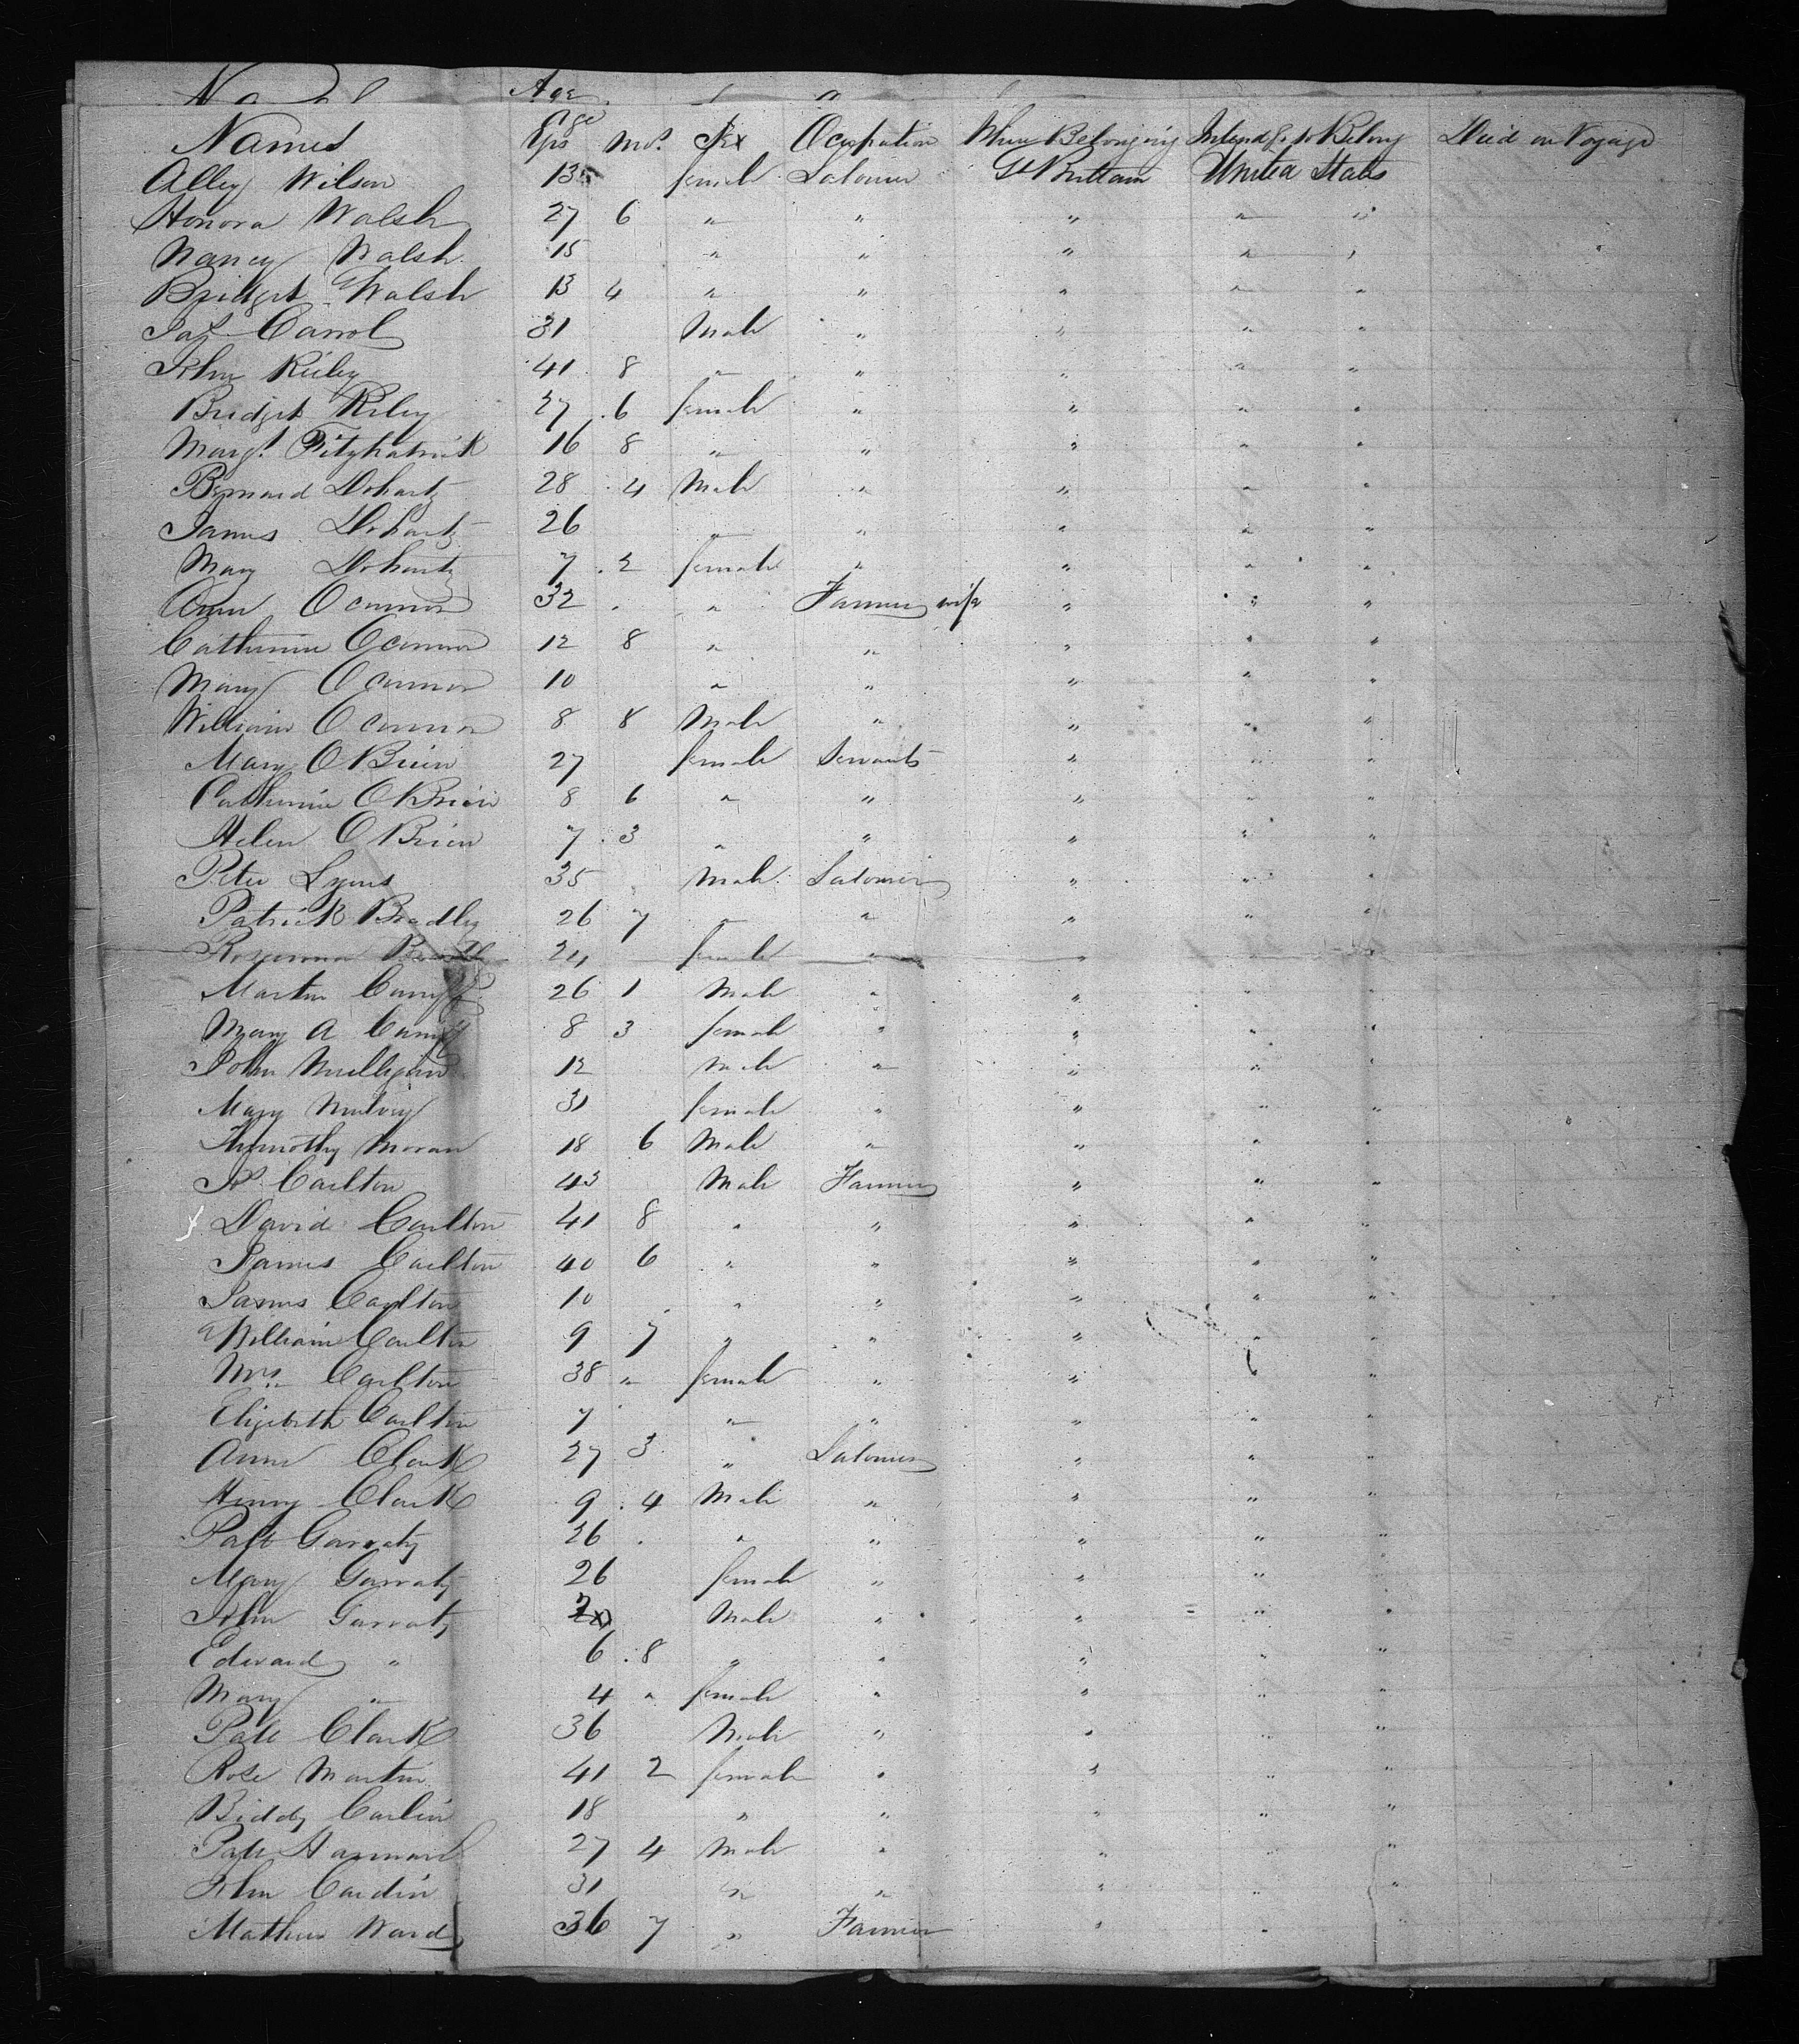 Age
Names Age Yrs Mos Sex Occupation Where Belonging Intends to Belong Died on Voyage
Alley Wilson 13 female Labourer Gt Brittain United States
Honora Walsh 27 6 " " " " "
Nancy Walsh 15 " " " " "
Bridget Walsh 13 4 " " " " "
Jas Carrol 31 Male " " " "
John Rieley 41 8 " " " " "
Bridget Riley 27 6 female " " " "
Margt Fitzpatrick 16 8 " " " " "
Bernard Doharty 28 4 Male " " " "
James Doharty 26 " " " " "
Mary Doharty 7 2 female " " " "
Ann OConnor 32 " Farmers wife " " "
Catherine OConnor 12 8 " " " " "
Mary OConnor 10 " " " " "
William OConnor 8 8 Male " " " "
Mary OBrien 27 female Servants " " "
Catherine OBrien 8 6 " " " " "
Helen OBrien 7 3 " " " " "
Peter Lyons 35 Male Labourer " " "
Patrick Bradley 26 7 " " " " "
Rosanna 24 female " " " "
Martin 26 1 Male " " " "
Mary A 8 3 female " " " "
John Mulligan 12 Male " " " "
Mary Mulvey 31 female " " " "
Thymothy Moran 18 6 Male " " " "
Carlton 43 Male Farmer " " "
David Carlton 41 8 " " " " "
James Carlton 40 6 " " " " "
James Carlton 10 " " " " "
William Carlton 9 7 " " " " "
Mrs Carlton 38 " female " " " "
Elizebeth Carlton 7 " " " " "
Ann Clark 27 3 " Labourer " " "
Henry Clark 9 4 Male " " " "
Patt Garraty 26 " " " " "
Mary Garraty 26 female " " " "
John Garraty Male " " " "
Edward " 6 8 " " " " "
Mary " 4 " female " " " "
Patt Clark 36 Male " " " "
Rose Martin 41 2 female " " " "
Biddy Carlin 18 " " " " "
Patt 27 4 Male " " " "
John Cardin 31 " " " " "
Mathew Ward 36 7 " Farmer " "